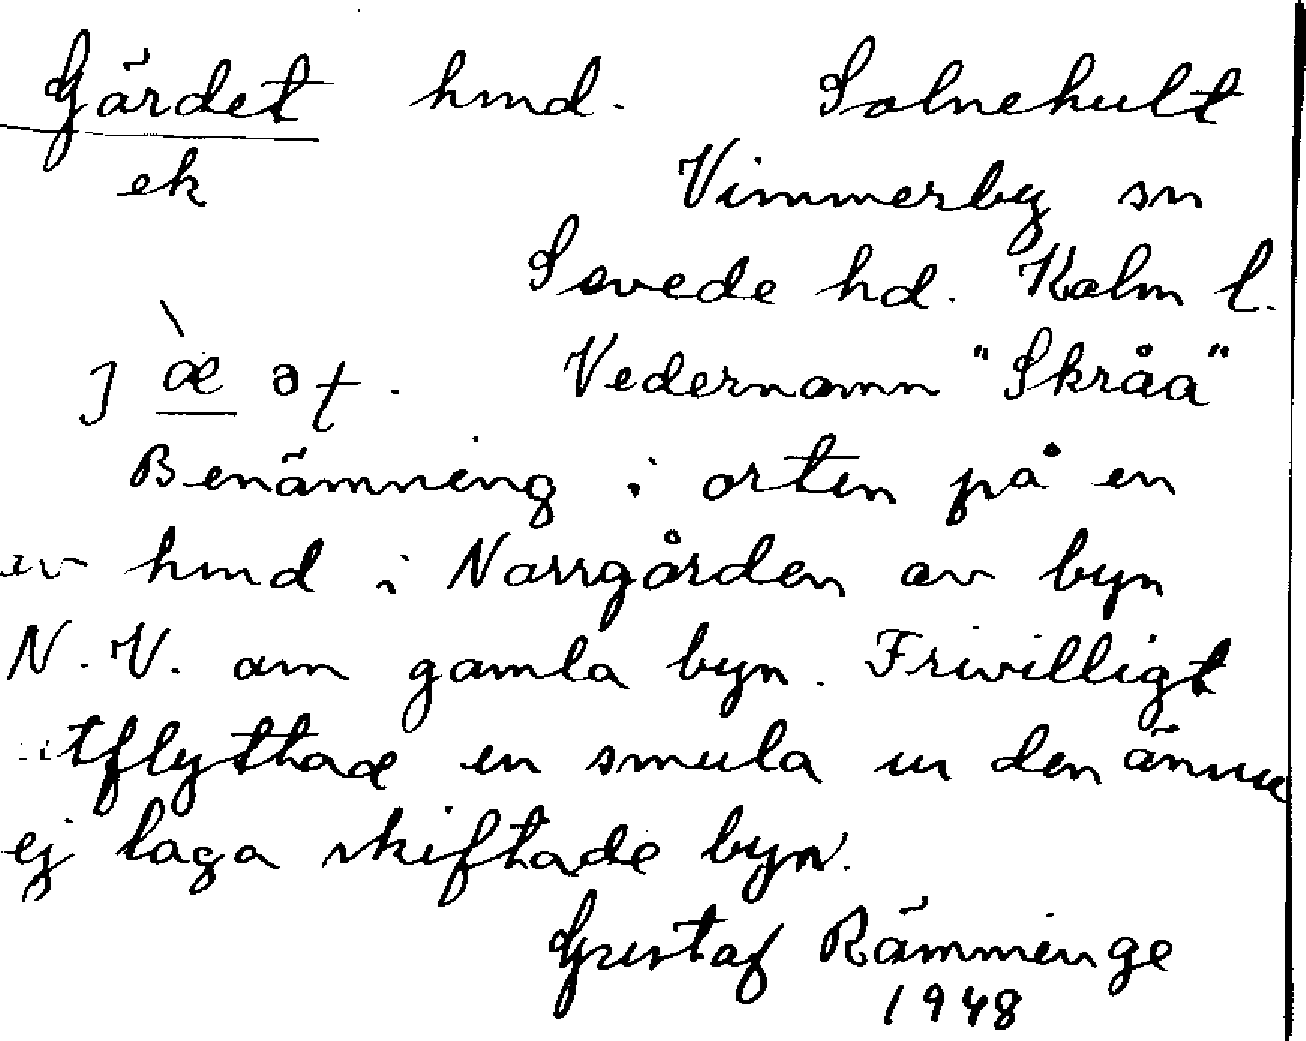 Gärdet hmd. Solnehult
ek Vimmerby sn
Sevede hd. Kalm l.
j æ̀ ət. Vedernamn "Skråa"
Benämning i orten på en
av hmd i Norrgården av byn
N. V. om gamla byn. Frivilligt
utflyttade en smula ur den ännu
ej laga skiftade byn.
Gustaf Rämminge
1948